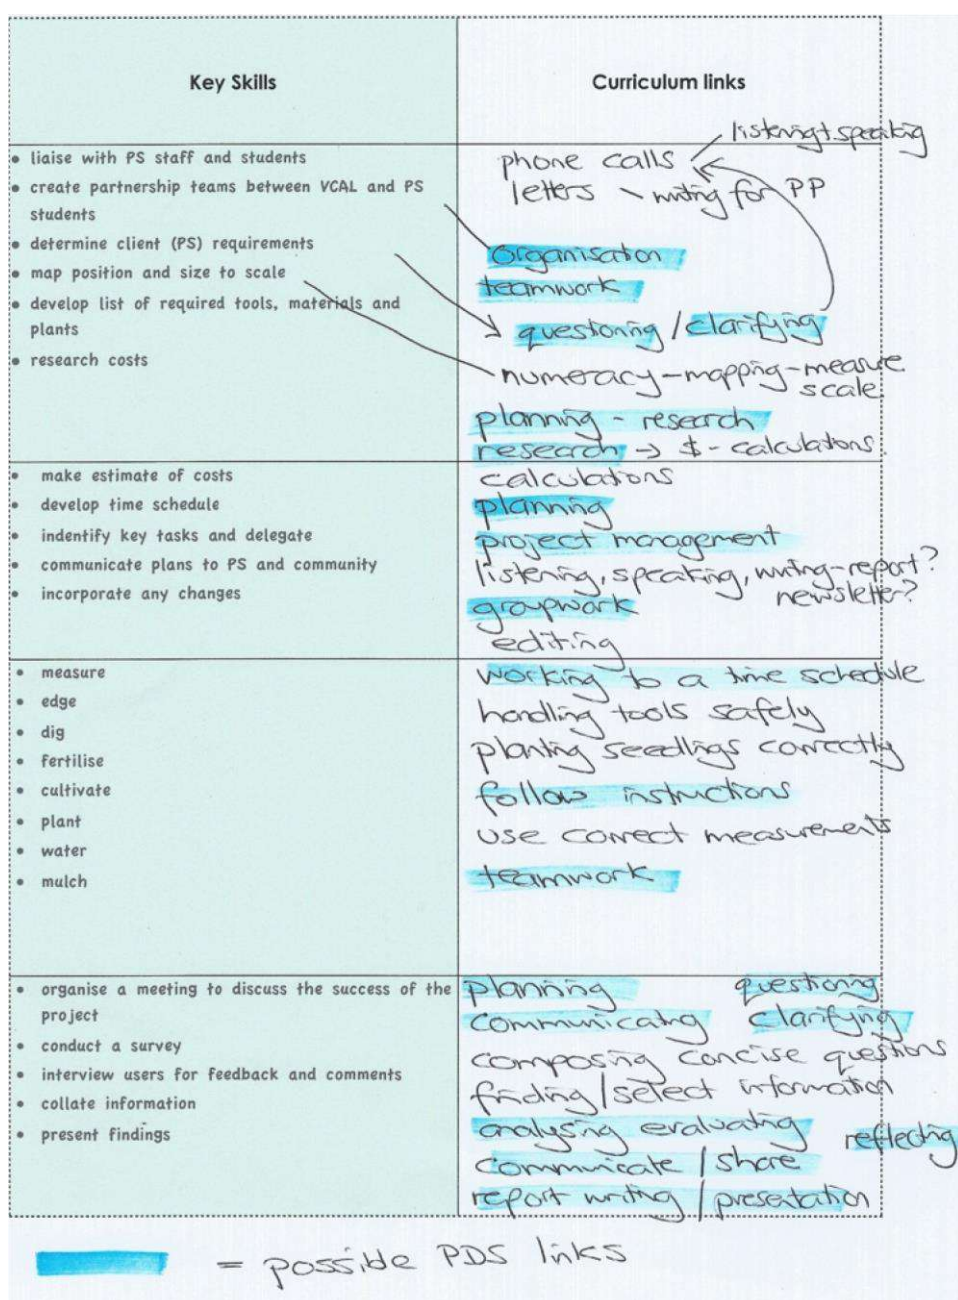 Key Skills
Curriculum links
listening + speaking
• liaise with PS staff and students
• create partnership teams between VCAL and PS
students
• determine client (PS) requirements
• map position and size to scale
• develop list of required tools, materials and
plants
• research costs
phone calls
letters - writing for PP
organisation
teamwork
questioning / clarifying
numeracy - mapping - measure
scale
planning - research
research → $ - calculations.
• make estimate of costs
• develop time schedule
• indentify key tasks and delegate
• communicate plans to PS and community
• incorporate any changes
calculations
planning
project management
listening, speaking, writing - report?
newsletter?
groupwork
editing
• measure
• edge
• dig
• fertilise
• cultivate
• plant
• water
• mulch
working to a time schedule
handling tools safely
planting seedlings correctly
follow instructions
use correct measurements
teamwork
• organise a meeting to discuss the success of the
project
• conduct a survey
• interview users for feedback and comments
• collate information
• present findings
planning questioning
communicating clarifying
composing concise questions
finding / select information
analysing evaluating
reflecting
communicate / share
report writing / presentation
= possible PDS links